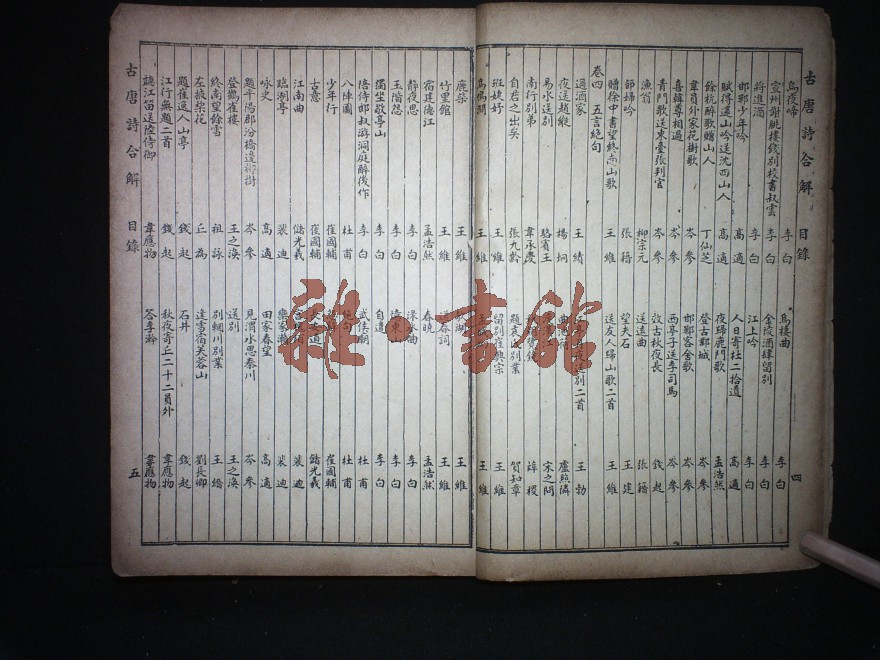 古唐詩合解 目錄 四
烏夜啼 李白 烏棲曲 李白
宣州謝朓樓餞別校書叔雲 李白 金陵酒肆留別 李白
將進酒 李白 江上吟 李白
邯鄲少年吟 高適 人日寄杜二拾遺 高適
賦得還山吟送沈四山人 高適 夜歸鹿門歌 孟浩然
餘杭醉歌贈山人 丁仙芝 登古鄴城 岑參
韋員外家花樹歌 岑參 邯鄲客舍歌 岑參
喜韓尊相過 岑參 西亭子送李司馬 岑參
青門歌送東臺張判官 岑參 效古秋夜長 錢起
漁翁 柳宗元 送遠曲 張籍
節婦吟 張籍 望夫石 王建
贈徐中書望終南山歌 王維 送友人歸山歌二首 王維
卷四 五言絕句
過酒家 王績 夜送別二首 王勃
夜送趙縱 楊炯 曲 盧照隣
易水送別 駱賓王 宋之問
南行別弟 韋承慶 薛稷
自君之出矣 張九齡 題袁別業 賀知章
班婕妤 王維 留別崔興宗 王維
王維 王維
鹿柴 王維 湖 王維
竹里館 王維 春詞 王維
宿建德江 孟浩然 春曉 孟浩然
靜夜思 李白 淥水曲 李白
玉階怨 李白 憶東山 李白
獨坐敬亭山 李白 自遣 李白
陪侍郎叔游洞庭醉後作 李白 武侯廟 杜甫
八陣圖 杜甫 絕句 杜甫
少年行 崔國輔 崔國輔
古意 崔國輔 道 儲光羲
江南曲 儲光羲 裴迪
臨湖亭 裴迪 欒家瀨 裴迪
詠史 高適 田家春望 高適
題平陽郡汾橋邊柳樹 岑參 見渭水思秦川 岑參
登鸛雀樓 王之渙 送別 王之渙
終南望餘雪 祖詠 別輞川別業 王縉
左掖梨花 丘為 逢雪宿芙蓉山 劉長卿
題崔逸人山亭 錢起 石井 錢起
江行無題二首 錢起 秋夜寄丘二十二員外 韋應物
聽江笛送陸侍御 韋應物 答李澣 韋應物
古唐詩合解 目錄 五
雜·書館